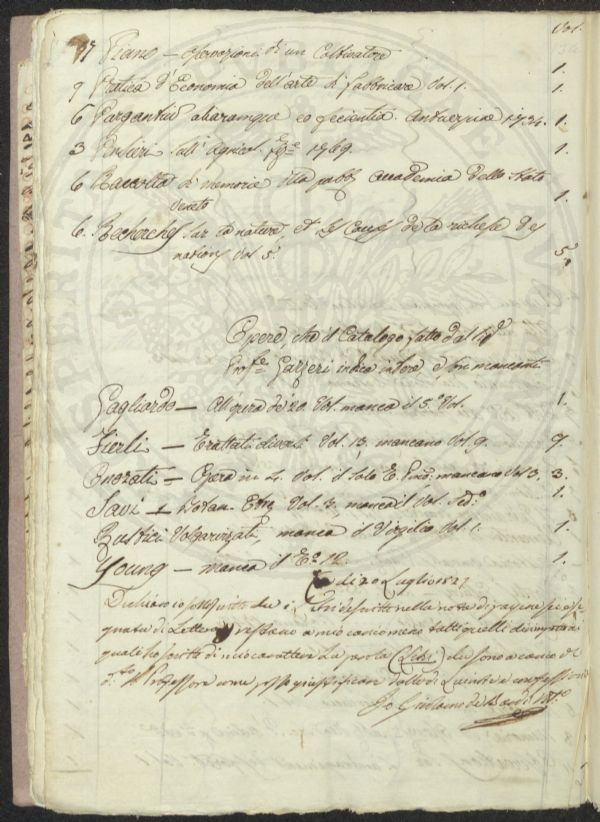 Vol.
17 Piano — osservazioni di un Coltivatore 1.
9 Pratica d'Economia dell'arte di fabbricare Vol. 1. 1.
6 Antuerpiae 1734. 1.
3 Pensieri sull' Agricol. 1769. 1.
6 Raccolta di memorie della pubb. accademia dello Stato
Veneto 1.
6. Recherches sur la nature et les causes de la richesse des
nations vol 5. 5.
Opere, che il Catalogo fatto dal Sig.
Prof.e Gazzeri indica intere e son mancanti
Gagliardo — All'opera de 20. Vol. manca il 5.° Vol. 1.
Fierli — Trattati diversi Vol. 13, mancano Vol. 9. 9.
Onorati — Opera in 4. Vol. il solo T. Pmo. mancano Vol 3. 3.
Savi — Botan. Etrus. Vol. 3. manca il Vol. Sed.o 1.
Rustici Volgarizzati, manca il Virgilio Vol. 1. 1.
Young — manca il T.o 12. 1.
di 20 Luglio 1821
Dichiaro io sottoscritto che i Libri descritti nelle note di pagine sei
gnate di Lettera restano a mio carico meno tutti quelli di
quale ho scritto di mio carattere la parola (Lessi) che sono a carico del
Professore come posso giustificare
Io Girolamo de Bardi